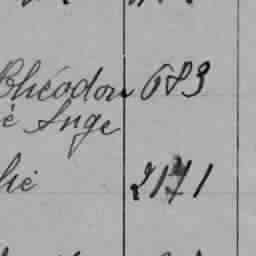 Théodore 683
é Ange
lié 2171